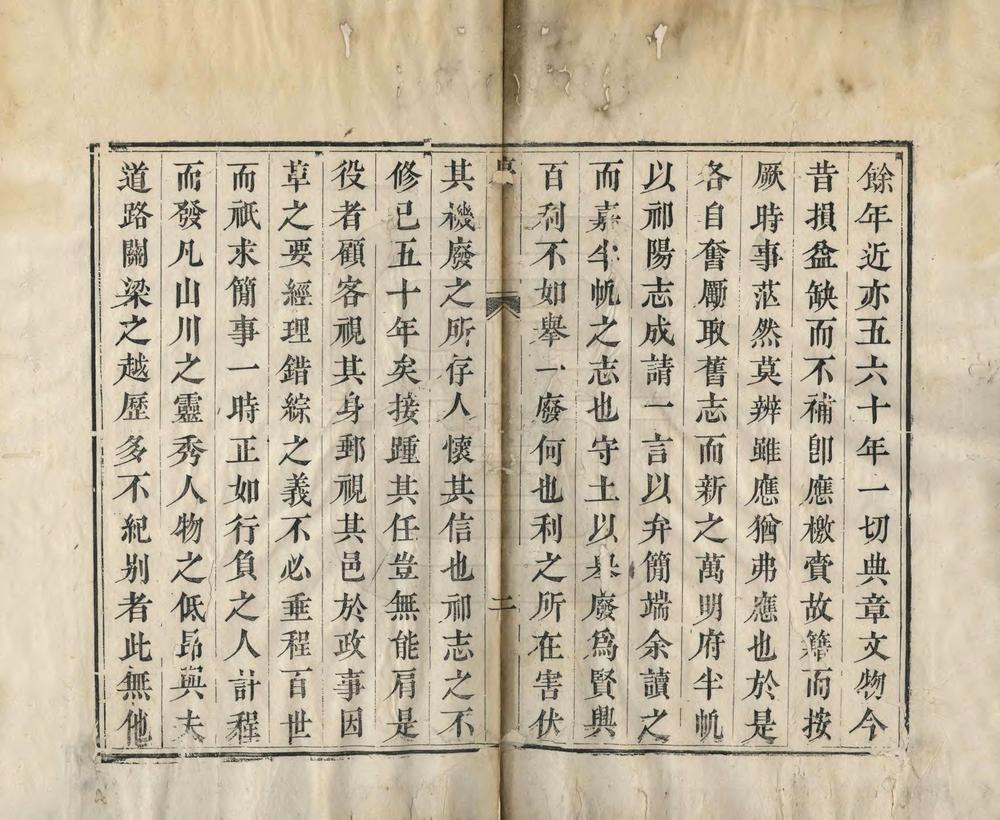 餘年近亦五六十年一切典章文物今
昔損益缺而不補卽應檄賫故籍而按
厥時事茫然莫辨雖應猶弗應也於是
各自奮勵取舊志而新之萬明府半帆
以祁陽志成請一言以弁簡端余讀之
而嘉半帆之志也守土以舉廢爲賢興
百利不如舉一廢何也利之所在害伏
序
二
其機廢之所存人懷其信也祁志之不
修已五十年矣接踵其任豈無能肩是
役者顧客視其身郵視其邑於政事因
草之要經理錯綜之義不必垂程百世
而祇求簡事一時正如行負之人計程
而發凡山川之靈秀人物之低昂與夫
道路關梁之越歷多不紀别者此無他